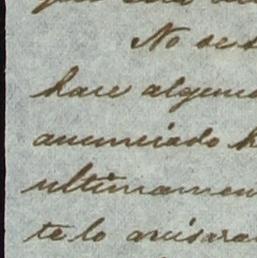 No se s
hace alguno
anunciado h
ultimamen
te lo avisara